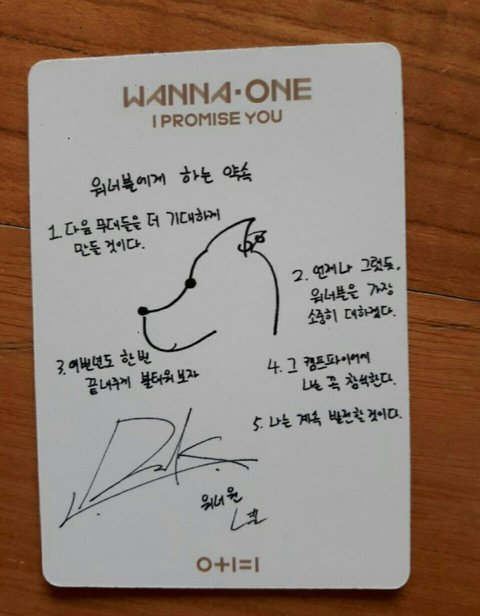 WANNA·ONE
I PROMISE YOU
워너블에게 하는 약속
1. 다음 무대들을 더 기대하게
만들 것이다.
2. 언제나 그렇듯,
워너블은 가장
소중히 대하겠다.
3. 이번년도 한번
끝내주게 불태워보자
4. 그 캠프파이어에
나는 꼭 참석한다.
5. 나는 계속 발전할것이다.
워너원
0+1=1